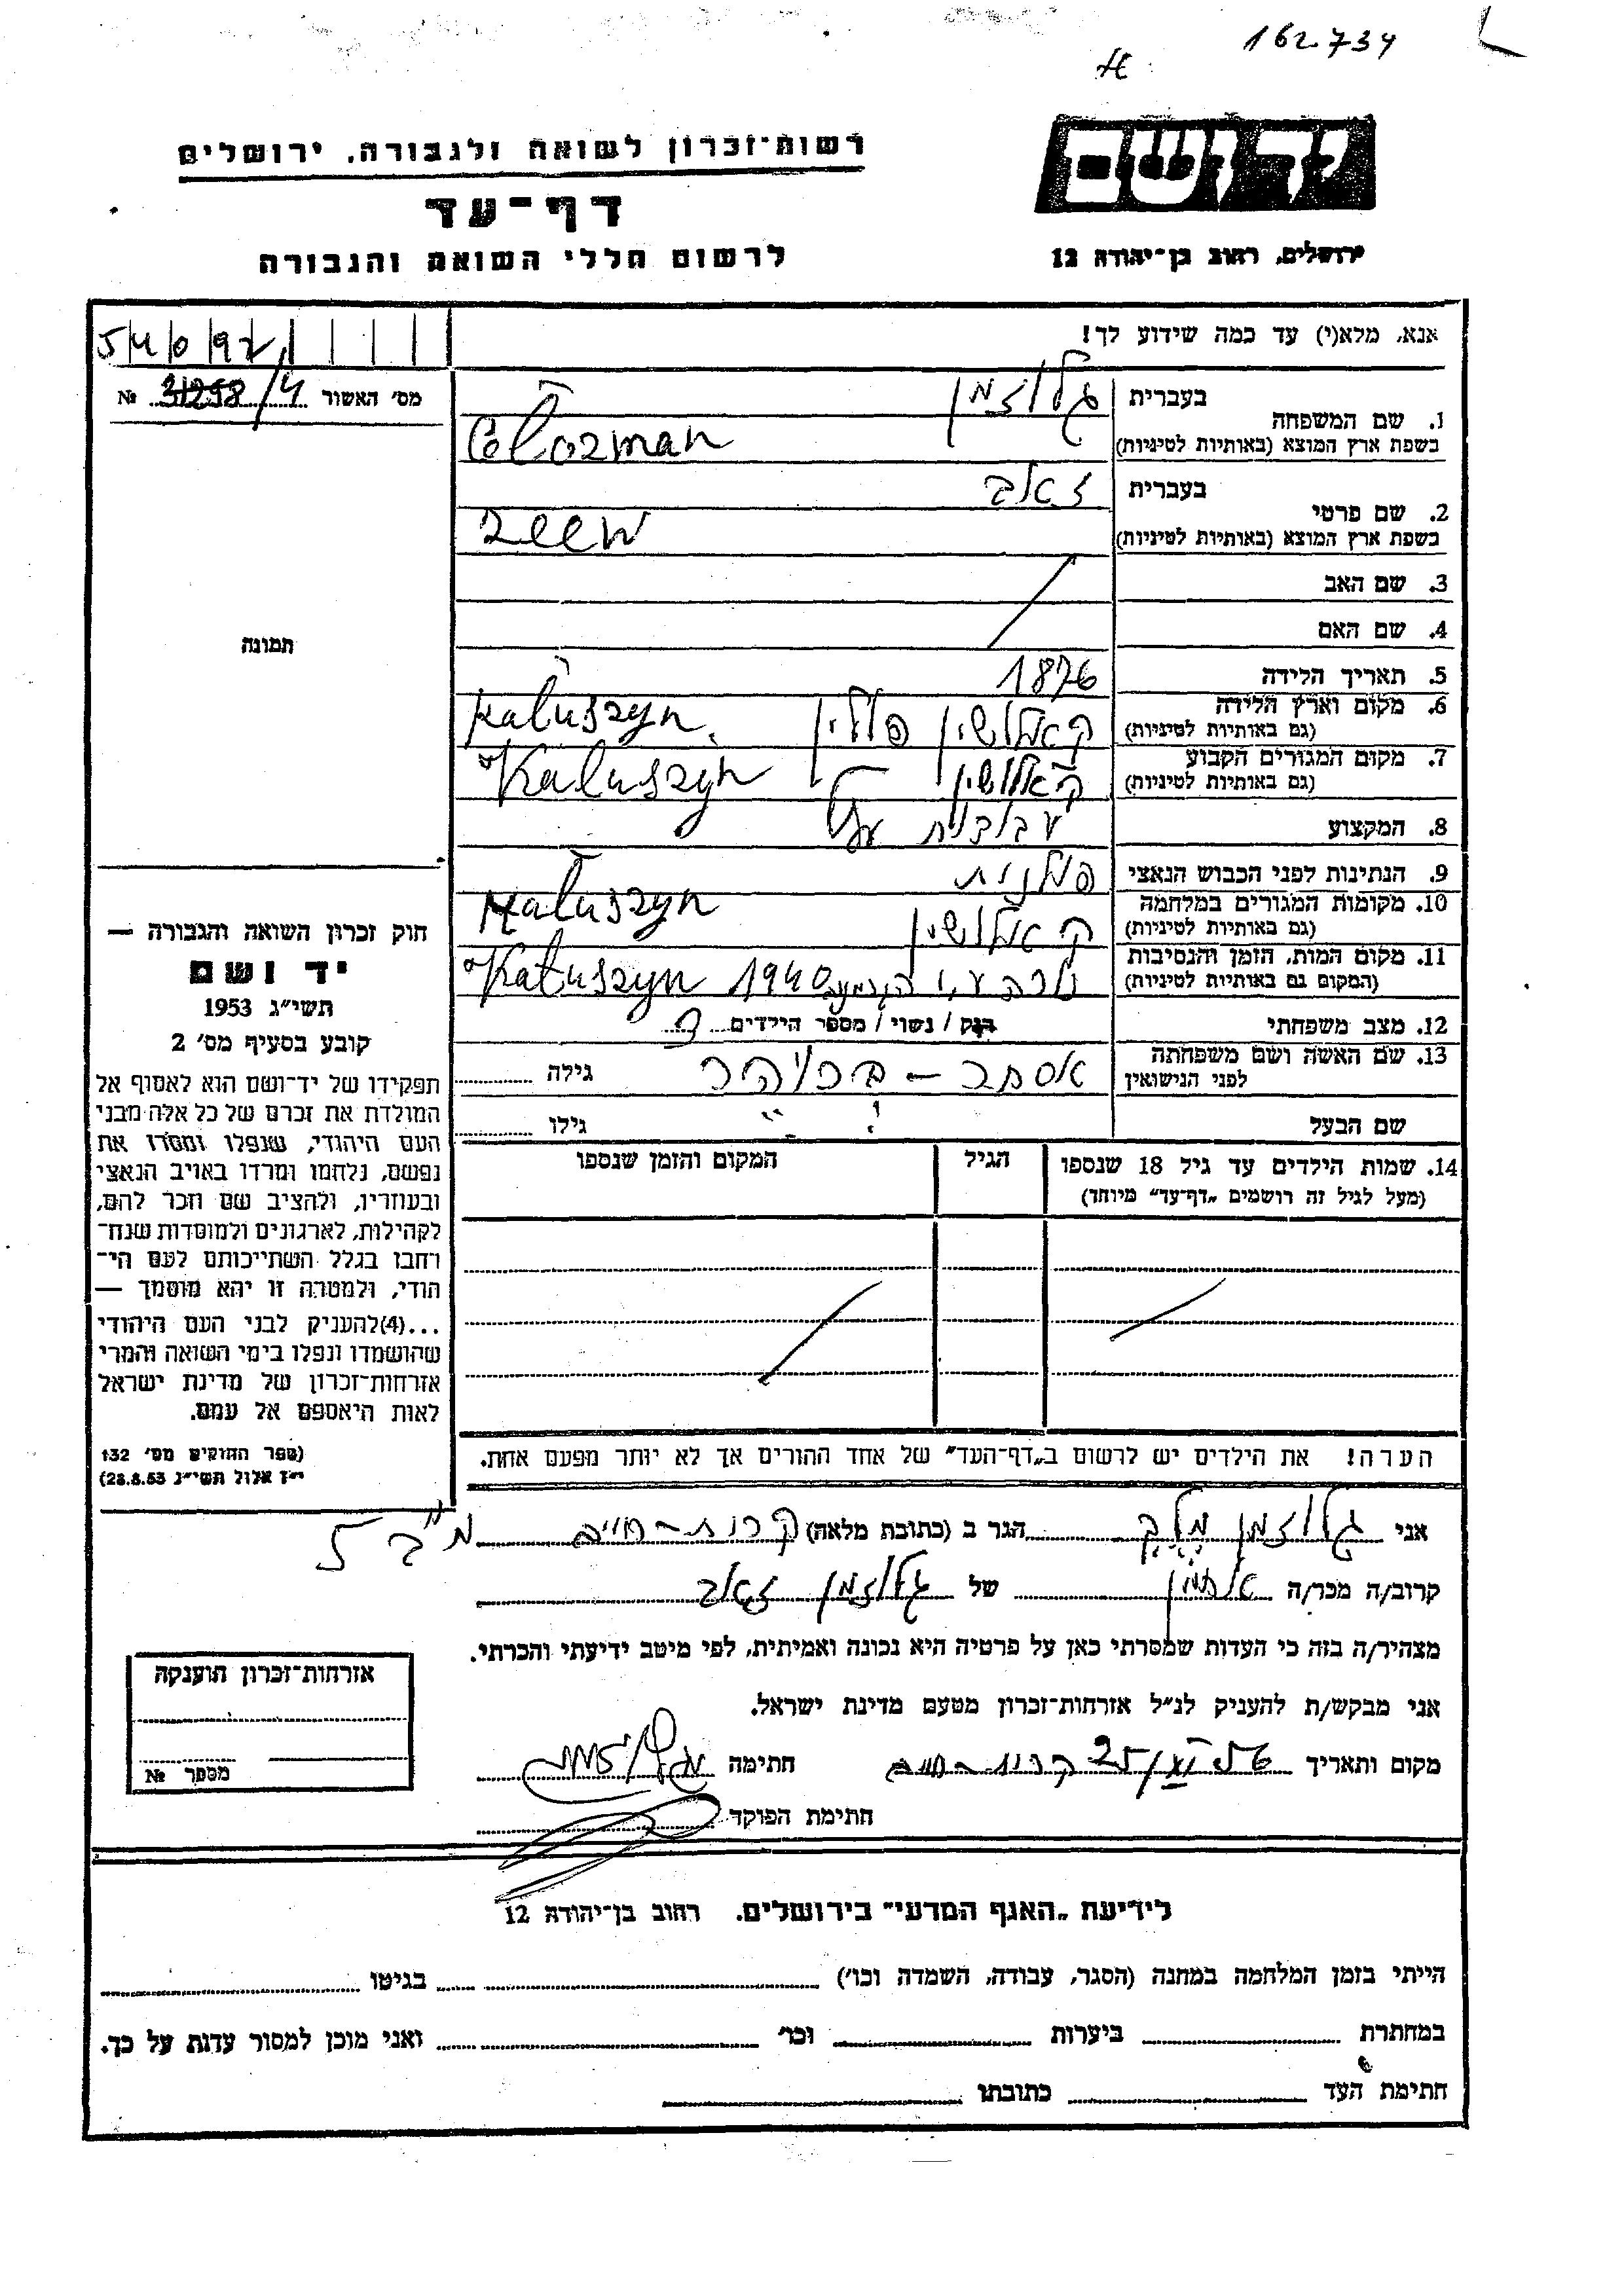 162734
יד ושם
רשות־זכרון לשואה ולגבורה, ירושלים
דף־עד
לרשום חללי השואה והגבורה
ירושלים, רחוב בן־יהודה 12
אנא, מלא(י) עד כמה שידוע לך!
מס׳ האשור 31298/4 №
1. שם המשפחה
בעברית גלוזמן
בשפת ארץ המוצא (באותיות לטיניות) Glozman
2. שם פרטי
בעברית זאב
בשפת ארץ המוצא (באותיות לטיניות) Zeew
3. שם האב
4. שם האם
5. תאריך הלידה 1876
6. מקום וארץ הלידה (גם באותיות לטיניות) קאלושין פולין Kałuszyn
7. מקום המגורים הקבוע (גם באותיות לטיניות) קאלושין Kałuszyn
8. המקצוע
9. הנתינות לפני הכבוש הנאצי פולנית
10. מקומות המגורים במלחמה (גם באותיות לטיניות) קאלושין Kałuszyn
11. מקום המות, הזמן והנסיבות (המקום גם באותיות לטיניות) 1940 Kałuszyn
12. מצב משפחתי רוק / נשוי / מספר הילדים
13. שם האשה ושם משפחתה לפני הנישואין אסתר – גילה
שם הבעל גילו
14. שמות הילדים עד גיל 18 שנספו (מעל לגיל זה רושמים „דף־עד״ מיוחד)
הגיל
המקום והזמן שנספו
הערה! את הילדים יש לרשום ב„דף־העד״ של אחד ההורים אך לא יותר מפעם אחת.
תמונה
חוק זכרון השואה והגבורה —
יד ושם
תשי״ג 1953
קובע בסעיף מס׳ 2
תפקידו של יד־ושם הוא לאסוף אל
המולדת את זכרם של כל אלה מבני
העם היהודי, שנפלו ומסרו את
נפשם, נלחמו ומרדו באויב הנאצי
ובעוזריו, ולהציב שם וזכר להם,
לקהילות, לארגונים ולמוסדות שנח־
רבו בגלל השתייכותם לעם הי־
הודי, ולמטרה זו יהא מוסמך —
...(4)להעניק לבני העם היהודי
שהושמדו ונפלו בימי השואה והמרי
אזרחות־זכרון של מדינת ישראל
לאות היאספם אל עמם.
(ספר החוקים מס׳ 132
י״ז אלול תשי״ג 28.8.53)
אני גלוזמן הגר ב (כתובת מלאה) קרית-חיים
קרוב/ה מכר/ה של גלוזמן זאב
מצהיר/ה בזה כי העדות שמסרתי כאן על פרטיה היא נכונה ואמיתית, לפי מיטב ידיעתי והכרתי.
אני מבקש/ת להעניק לנ״ל אזרחות־זכרון מטעם מדינת ישראל.
מקום ותאריך קרית-חיים חתימה
חתימת הפוקד
אזרחות־זכרון הוענקה
מספר №
לידיעת „האגף המדעי״ בירושלים, רחוב בן־יהודה 12
הייתי בזמן המלחמה במחנה (הסגר, עבודה, השמדה וכו׳) בגיטו
במחתרת ביערות וכו׳ ואני מוכן למסור עדות על כך.
חתימת העד כתובתו